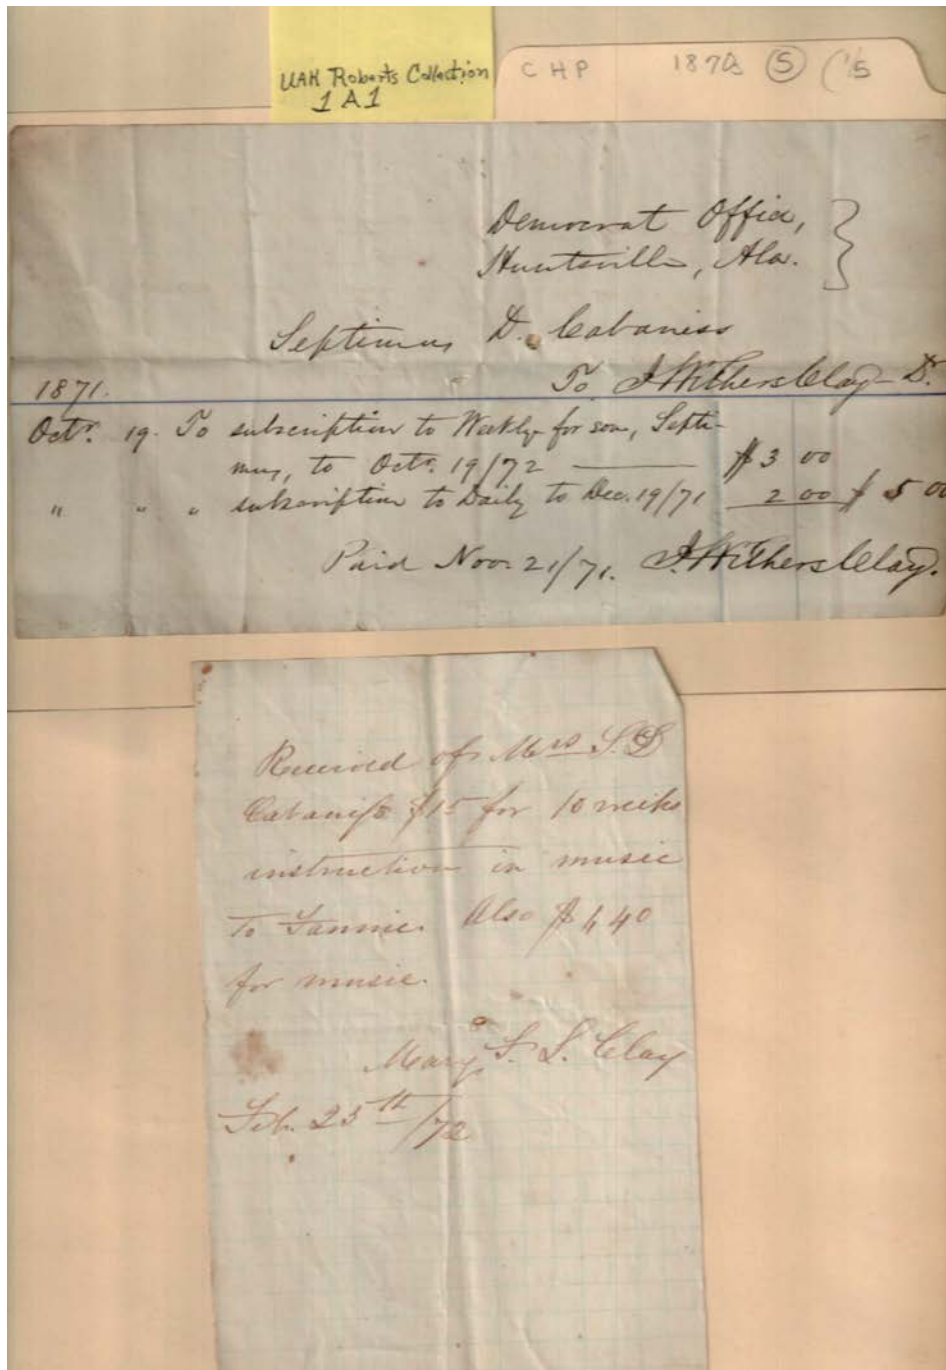 UAH Roberts Collection
1 A 1
C H P 1870s (5) ('15
Democrat Office,
Huntsville, Ala.
Septimus D. Cabaniss
1871. To J Withers Clay Dr.
Octr. 19. To subscription to Weekly for son, Septi-
mus, to Octr. 19/72 $3 00
" " " subscription to Daily to Dec. 19/71 2 00 $ 5 00
Paid Nov. 21/71. J. Withers Clay.
Received of Mrs S. D
Cabaniss $15 for 10 weeks
instruction in music
to Fannie. Also $4.40
for music.
Mary F. L. Clay
Feb. 25th/72